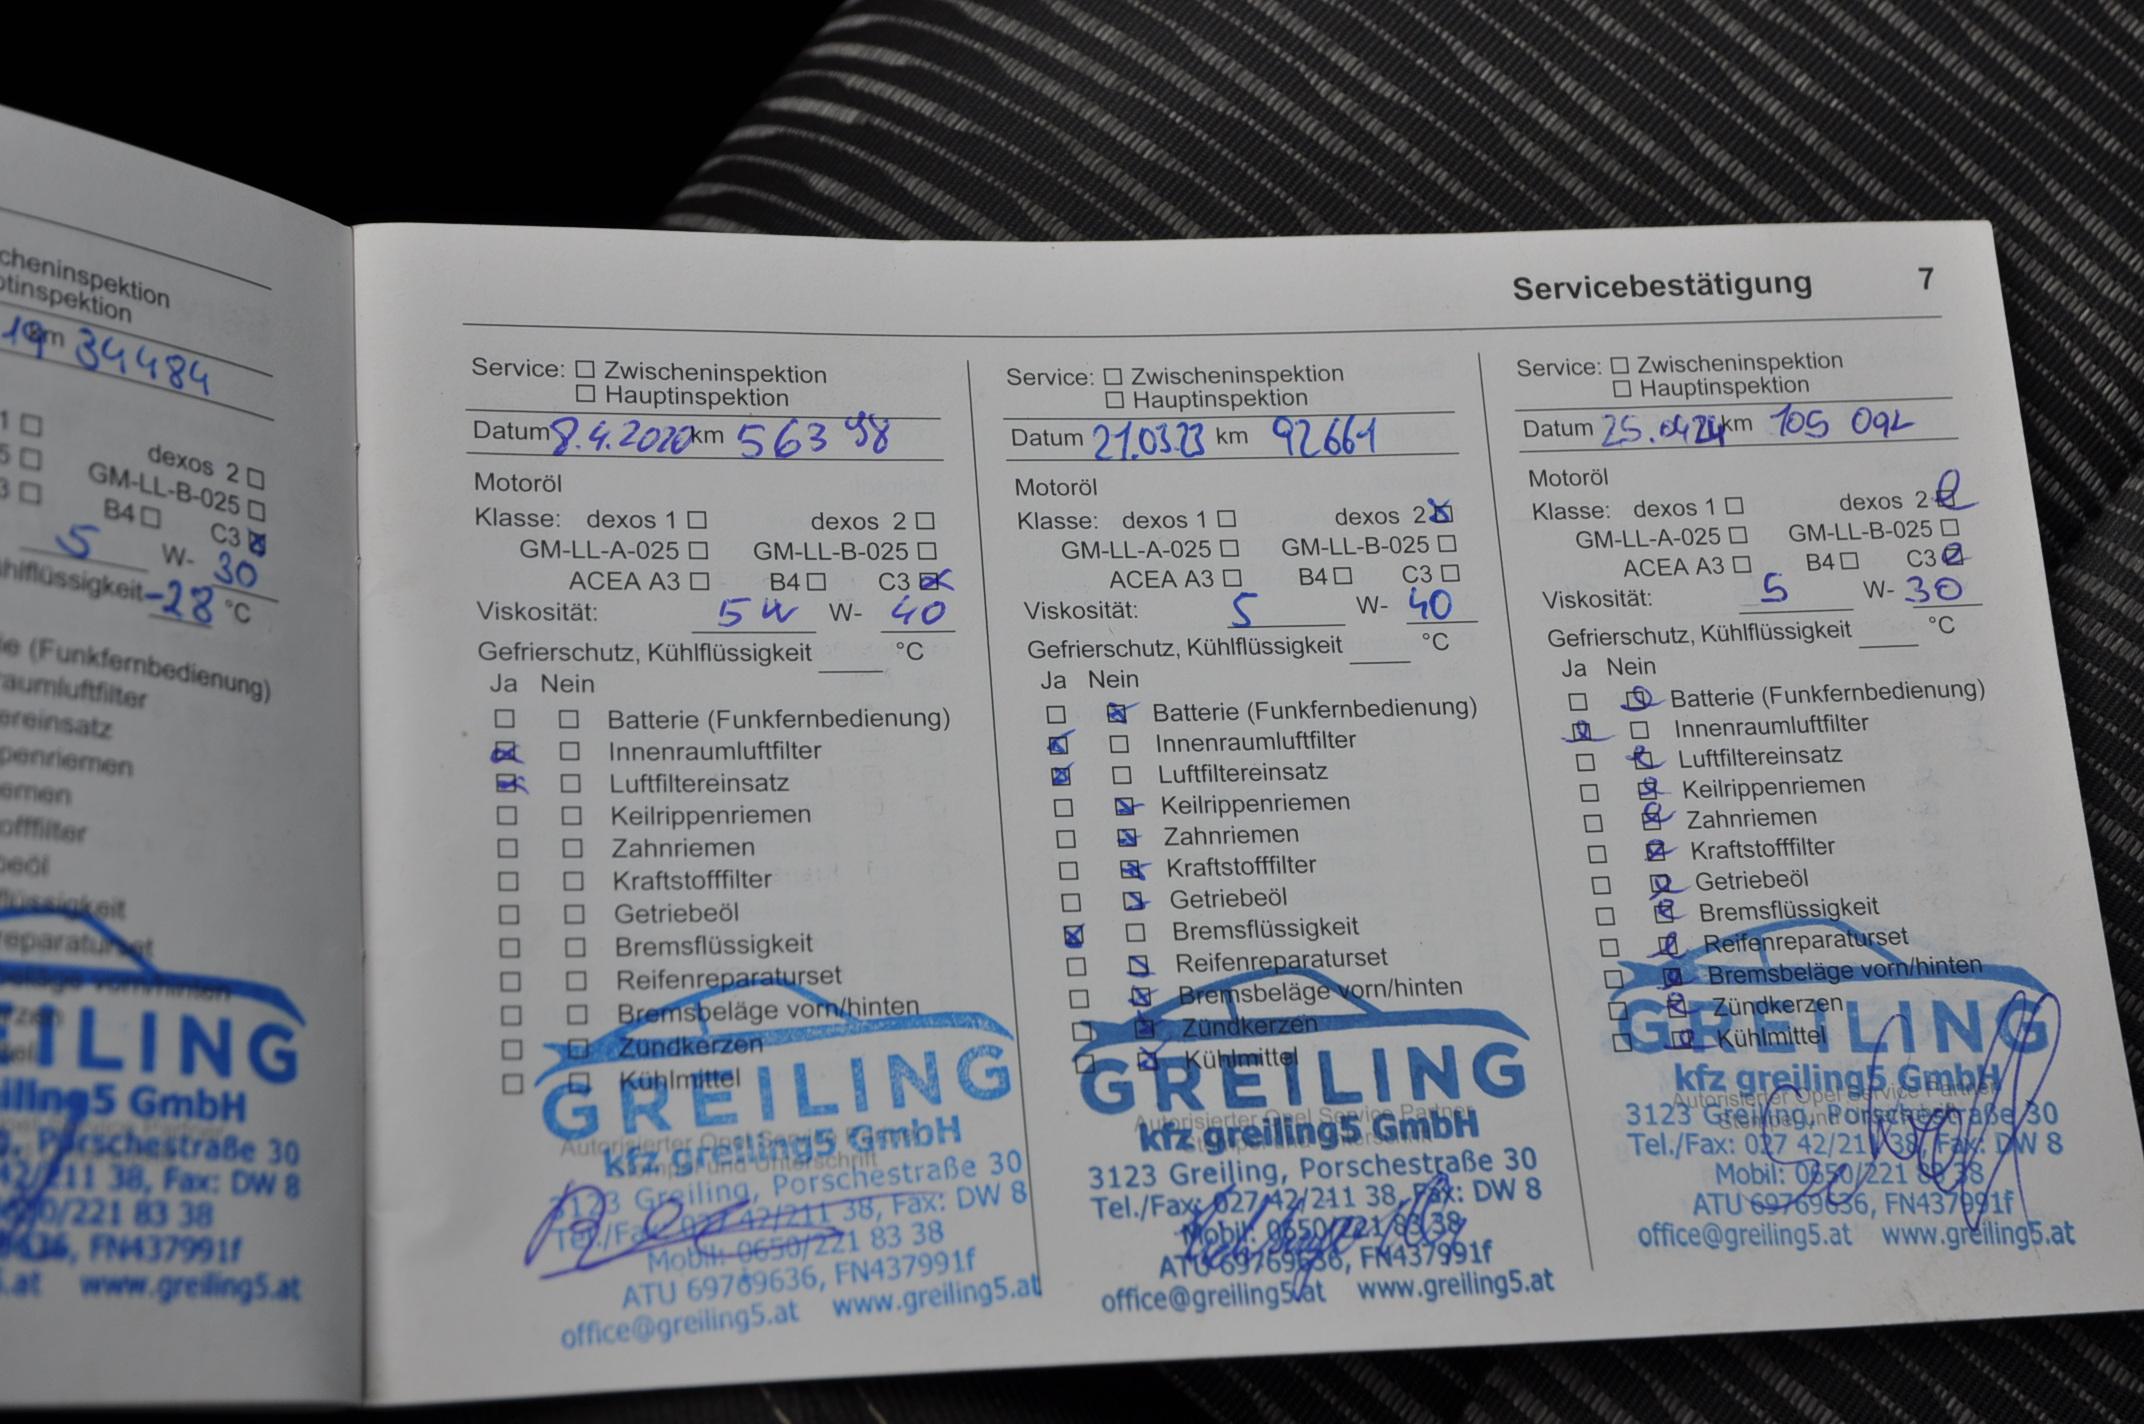 cheninspektion
otinspektion
19 km 34484
1 ☐ dexos 2 ☐
5 ☐ GM-LL-B-025 ☐
3 ☐ B4 ☐ C3 ☒
5 W- 30
ühlflüssigkeit -28 °C
ie (Funkfernbedienung)
aumluftfilter
ereinsatz
penriemen
emen
offfilter
beöl
flüssigkeit
reparaturset
beläge vorn/hinten
EILING
iling5 GmbH
Porschestraße 30
42/211 38, Fax: DW 8
0/221 83 38
9636, FN437991f
.at www.greiling5.at
Servicebestätigung 7
Service: ☐ Zwischeninspektion
☐ Hauptinspektion
Datum 8.4.2020 km 56398
Motoröl
Klasse: dexos 1 ☐ dexos 2 ☐
GM-LL-A-025 ☐ GM-LL-B-025 ☐
ACEA A3 ☐ B4 ☐ C3 ☒
Viskosität: 5W W- 40
Gefrierschutz, Kühlflüssigkeit ___ °C
Ja Nein
☐ ☐ Batterie (Funkfernbedienung)
☒ ☐ Innenraumluftfilter
☒ ☐ Luftfiltereinsatz
☐ ☐ Keilrippenriemen
☐ ☐ Zahnriemen
☐ ☐ Kraftstofffilter
☐ ☐ Getriebeöl
☐ ☐ Bremsflüssigkeit
☐ ☐ Reifenreparaturset
☐ ☐ Bremsbeläge vorn/hinten
☐ ☐ Zündkerzen
☐ ☐ Kühlmittel
GREILING
Autorisierter Opel Service Partner
kfz greiling5 GmbH
Stempel und Unterschrift
3123 Greiling, Porschestraße 30
Tel./Fax: 027 42/211 38, Fax: DW 8
Mobil: 0650/221 83 38
ATU 69769636, FN437991f
office@greiling5.at www.greiling5.at
Service: ☐ Zwischeninspektion
☐ Hauptinspektion
Datum 21.03.23 km 92661
Motoröl
Klasse: dexos 1 ☐ dexos 2 ☒
GM-LL-A-025 ☐ GM-LL-B-025 ☐
ACEA A3 ☐ B4 ☐ C3 ☐
Viskosität: 5 W- 40
Gefrierschutz, Kühlflüssigkeit ___ °C
Ja Nein
☐ ☒ Batterie (Funkfernbedienung)
☒ ☐ Innenraumluftfilter
☒ ☐ Luftfiltereinsatz
☐ ☒ Keilrippenriemen
☐ ☒ Zahnriemen
☐ ☒ Kraftstofffilter
☐ ☒ Getriebeöl
☒ ☐ Bremsflüssigkeit
☐ ☒ Reifenreparaturset
☐ ☒ Bremsbeläge vorn/hinten
☐ ☒ Zündkerzen
☐ ☒ Kühlmittel
GREILING
Autorisierter Opel Service Partner
kfz greiling5 GmbH
3123 Greiling, Porschestraße 30
Tel./Fax: 027 42/211 38, Fax: DW 8
Mobil: 0650/221 83 38
ATU 69769636, FN437991f
office@greiling5.at www.greiling5.at
Service: ☐ Zwischeninspektion
☐ Hauptinspektion
Datum 25.0424 km 105 092
Motoröl
Klasse: dexos 1 ☐ dexos 2 ☒
GM-LL-A-025 ☐ GM-LL-B-025 ☐
ACEA A3 ☐ B4 ☐ C3 ☒
Viskosität: 5 W- 30
Gefrierschutz, Kühlflüssigkeit ___ °C
Ja Nein
☐ ☒ Batterie (Funkfernbedienung)
☒ ☐ Innenraumluftfilter
☐ ☒ Luftfiltereinsatz
☐ ☒ Keilrippenriemen
☐ ☒ Zahnriemen
☐ ☒ Kraftstofffilter
☐ ☒ Getriebeöl
☐ ☒ Bremsflüssigkeit
☐ ☒ Reifenreparaturset
☐ ☒ Bremsbeläge vorn/hinten
☐ ☒ Zündkerzen
☐ ☒ Kühlmittel
GREILING
kfz greiling5 GmbH
Autorisierter Opel Service Partner
3123 Greiling, Porschestraße 30
Stempel und Unterschrift
Tel./Fax: 027 42/211 38, Fax: DW 8
Mobil: 0650/221 83 38
ATU 69769636, FN437991f
office@greiling5.at www.greiling5.at